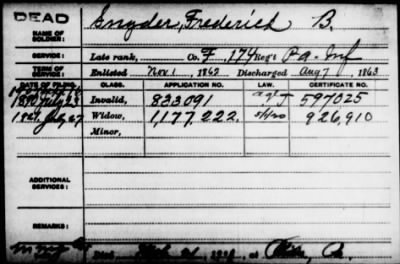 DEAD
NAME OF SOLDIER: Snyder, Frederick B.
SERVICE: Late rank, Co. F, 174 Reg't Pa. Inf
TERM OF SERVICE: Enlisted Nov. 1, 1862 Discharged Aug 7, 1863
DATE OF FILING. CLASS. APPLICATION NO. LAW. CERTIFICATE NO.
1890 July 23 Invalid, 833091 J 597025
July 27 Widow, 1,177,222. 926,910
Minor,
ADDITIONAL SERVICES:
REMARKS:
Died at